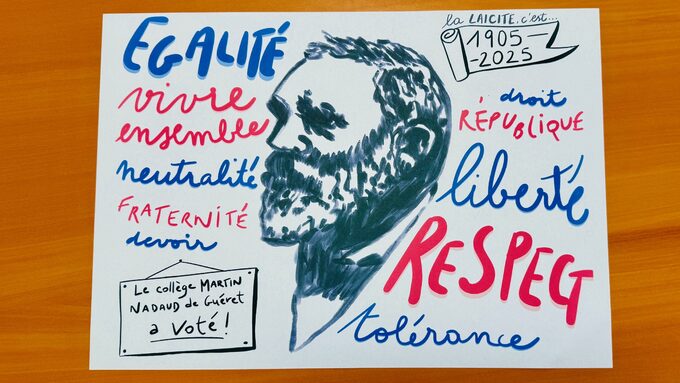 EGALITÉ
vivre
ensemble
neutralité
FRATERNITÉ
devoir
Le collège MARTIN
NADAUD de Guéret
a voté !
la LAICITE, c'est...
1905-
-2025
droit
RÉPUBLIQUE
liberté
RESPECT
tolérance